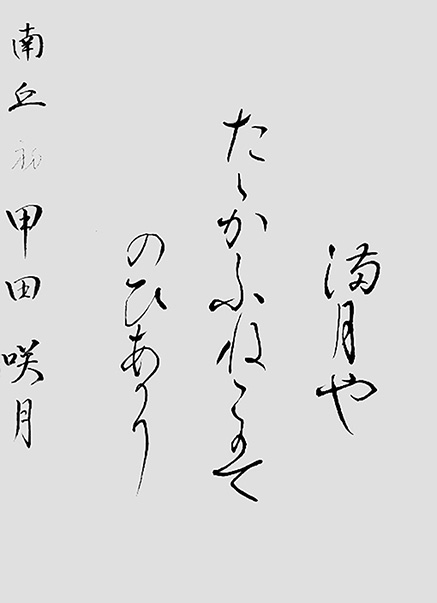 満月や
たゝかふねこは
のひあかり
南丘 甲田咲月